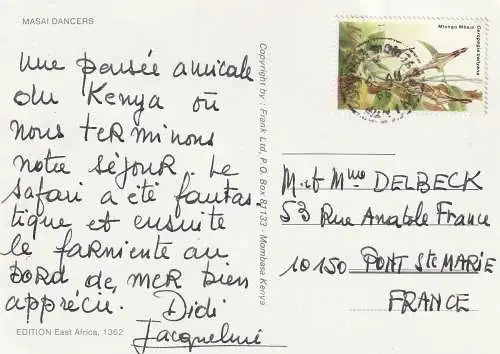 MASAI DANCERS
Une pensée amicale
du Kenya où
nous terminons
notre séjour. Le
safari a été fantas-
tique et ensuite
le farniente au
bord de mer bien
apprécié. Didi
Jacqueline
EDITION East Africa, 1362
Copyright by : Frank Ltd, P.O. Box 81133 - Mombasa Kenya
Mtunga Mbaja
Ceropegia
M. et Mme DELBECK
53 Rue Anatole France
10150 PONT Ste MARIE
FRANCE